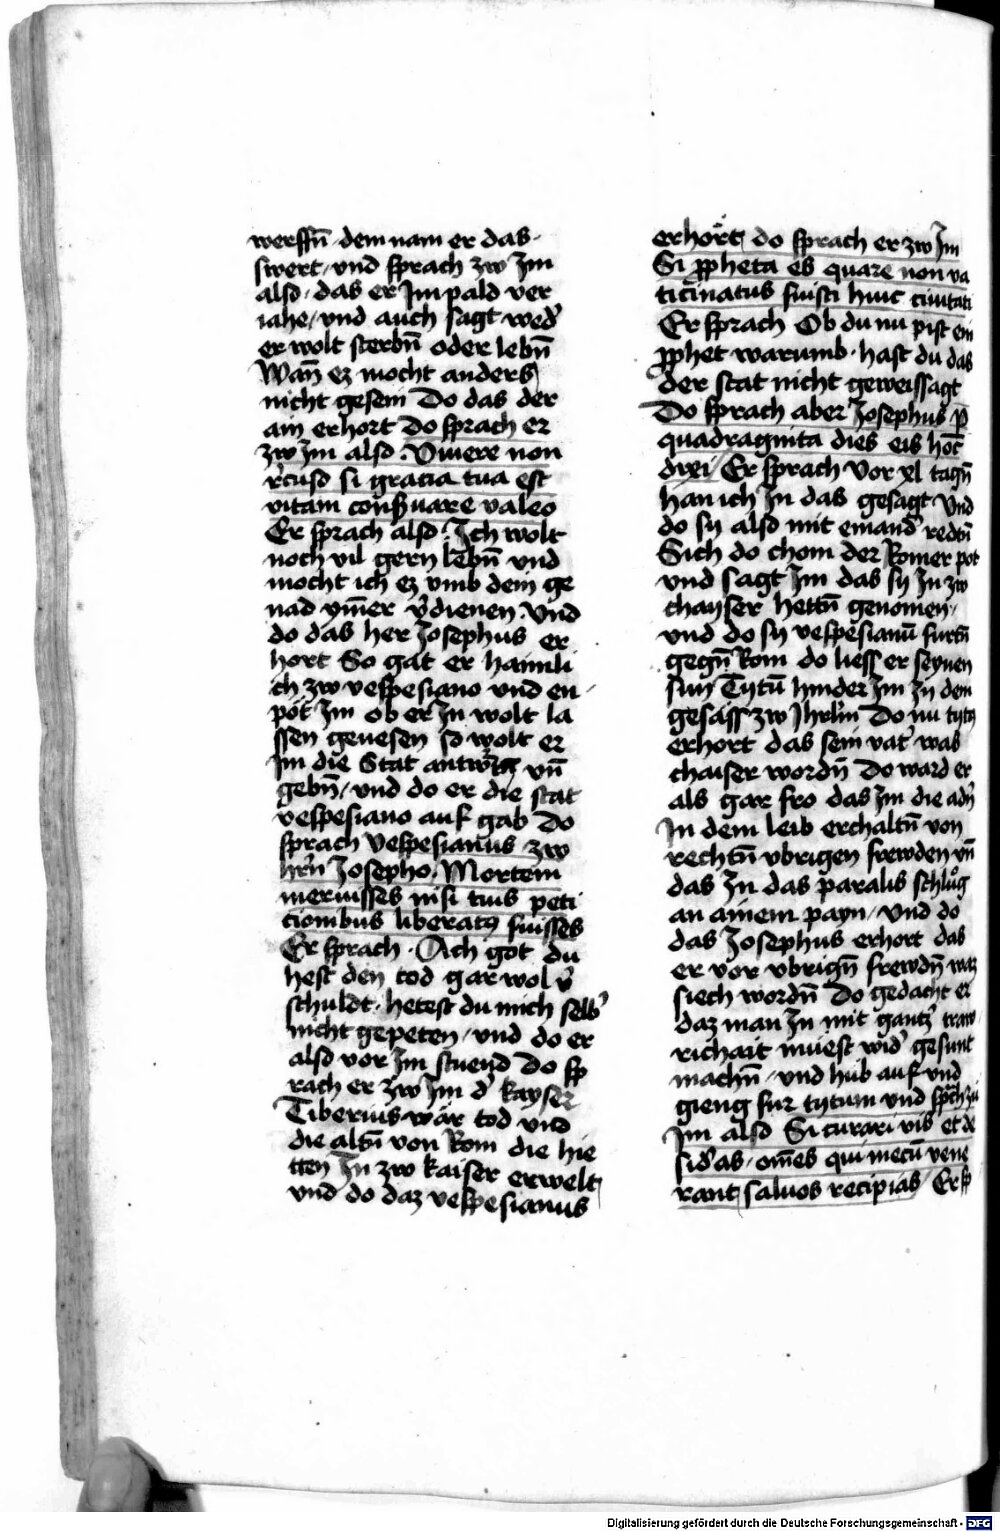 werffn̄ · dem nam er das ·
swert / vnd sprach zw Im
also · das er Im pald ver
iahe / vnd auch sagt wed᷑
er wolt sterbn̄ oder lebn̄
Wan̄ ez mocht anders
nicht gesein Do das der
ain erhort Do sprach er
zw Im also . Viuere non
r᷑cuso si gracia tua est
vitam conß̲uare valeo
Er sprach also : Ich wolt
noch vil gern lebn̄ vnd
mocht ich ez vmb dem ge
nad ym̄er v᷑dienen . Vnd
do das her Josephus er
hort So gat er haimli
ch zw vespesiano vnd en /
pot Im ob er In wolt la
ssen genesen so wolt er
Im die Stat vn̄
gebn̄ / vnd do er die stat
vespesiano auf gab Do
sprach Vespesianus zw
hr̄n Josepho . Mortem
meruisses nisi tuis peti
cionibus liberatꝰ fuisses
Er sprach · Ach got du
hest den tod gar wol v᷑
schuldt · hetest du mich selb᷑
nicht gepeten / vnd do er
also vor Im stuend Do sp
rach er zw Im d᷑ kayser
Tiberius wär tod vnd
die altn̄ von Rom die hie
tten In zw kaiser erwelt
vnd do daz vespesianus
erhört do sprach er zw Im
Si ꝓpheta es quare non va
ticinatus fuisti huic ciuitati
Er sprach Ob du nu pist ein
ꝓphet warumb · hast du das
der stat nicht geweissagt
Do sprach aber Josephus ꝑ
quadraginta dies eis hoc̄
dixi / Er sprach Vor xl tagn̄
han ich In das gesagt Vnd
do sy also mit einand᷑ redtn̄
Sich do chom der Romer pot
vnd sagt Im das sy In zw
chayser hettn̄ genomen /
vnd do sy vespesianū furtn̄
gegn̄ Rom do liess er seynen
sun Tytū hinder Im In dem
gesäss zw Ihrlm̄ Do nu tytꝰ
erhort das sein vat᷑ was
chaiser wordn̄ Do ward er
als gar fro das Im die adn̄
In dem leib erchaltn̄ von
rechtn̄ vbrigen frewden vn̄
das In das paralis schlůg
an ainem payn / vnd do
das Josephus erhort das
er vor vbrign̄ frewdn̄ waz
siech wordn̄ Do gedacht er
daz man In mit gantz᷑ traw
richait müest wid᷑ gesunt
machn̄ / vnd hub auf vnd
gieng fur tytum vnd sprach zu
Im also Si curari vis et de
sid᷑as · om̄es qui mecū vene
rant saluos recipias / Er sp